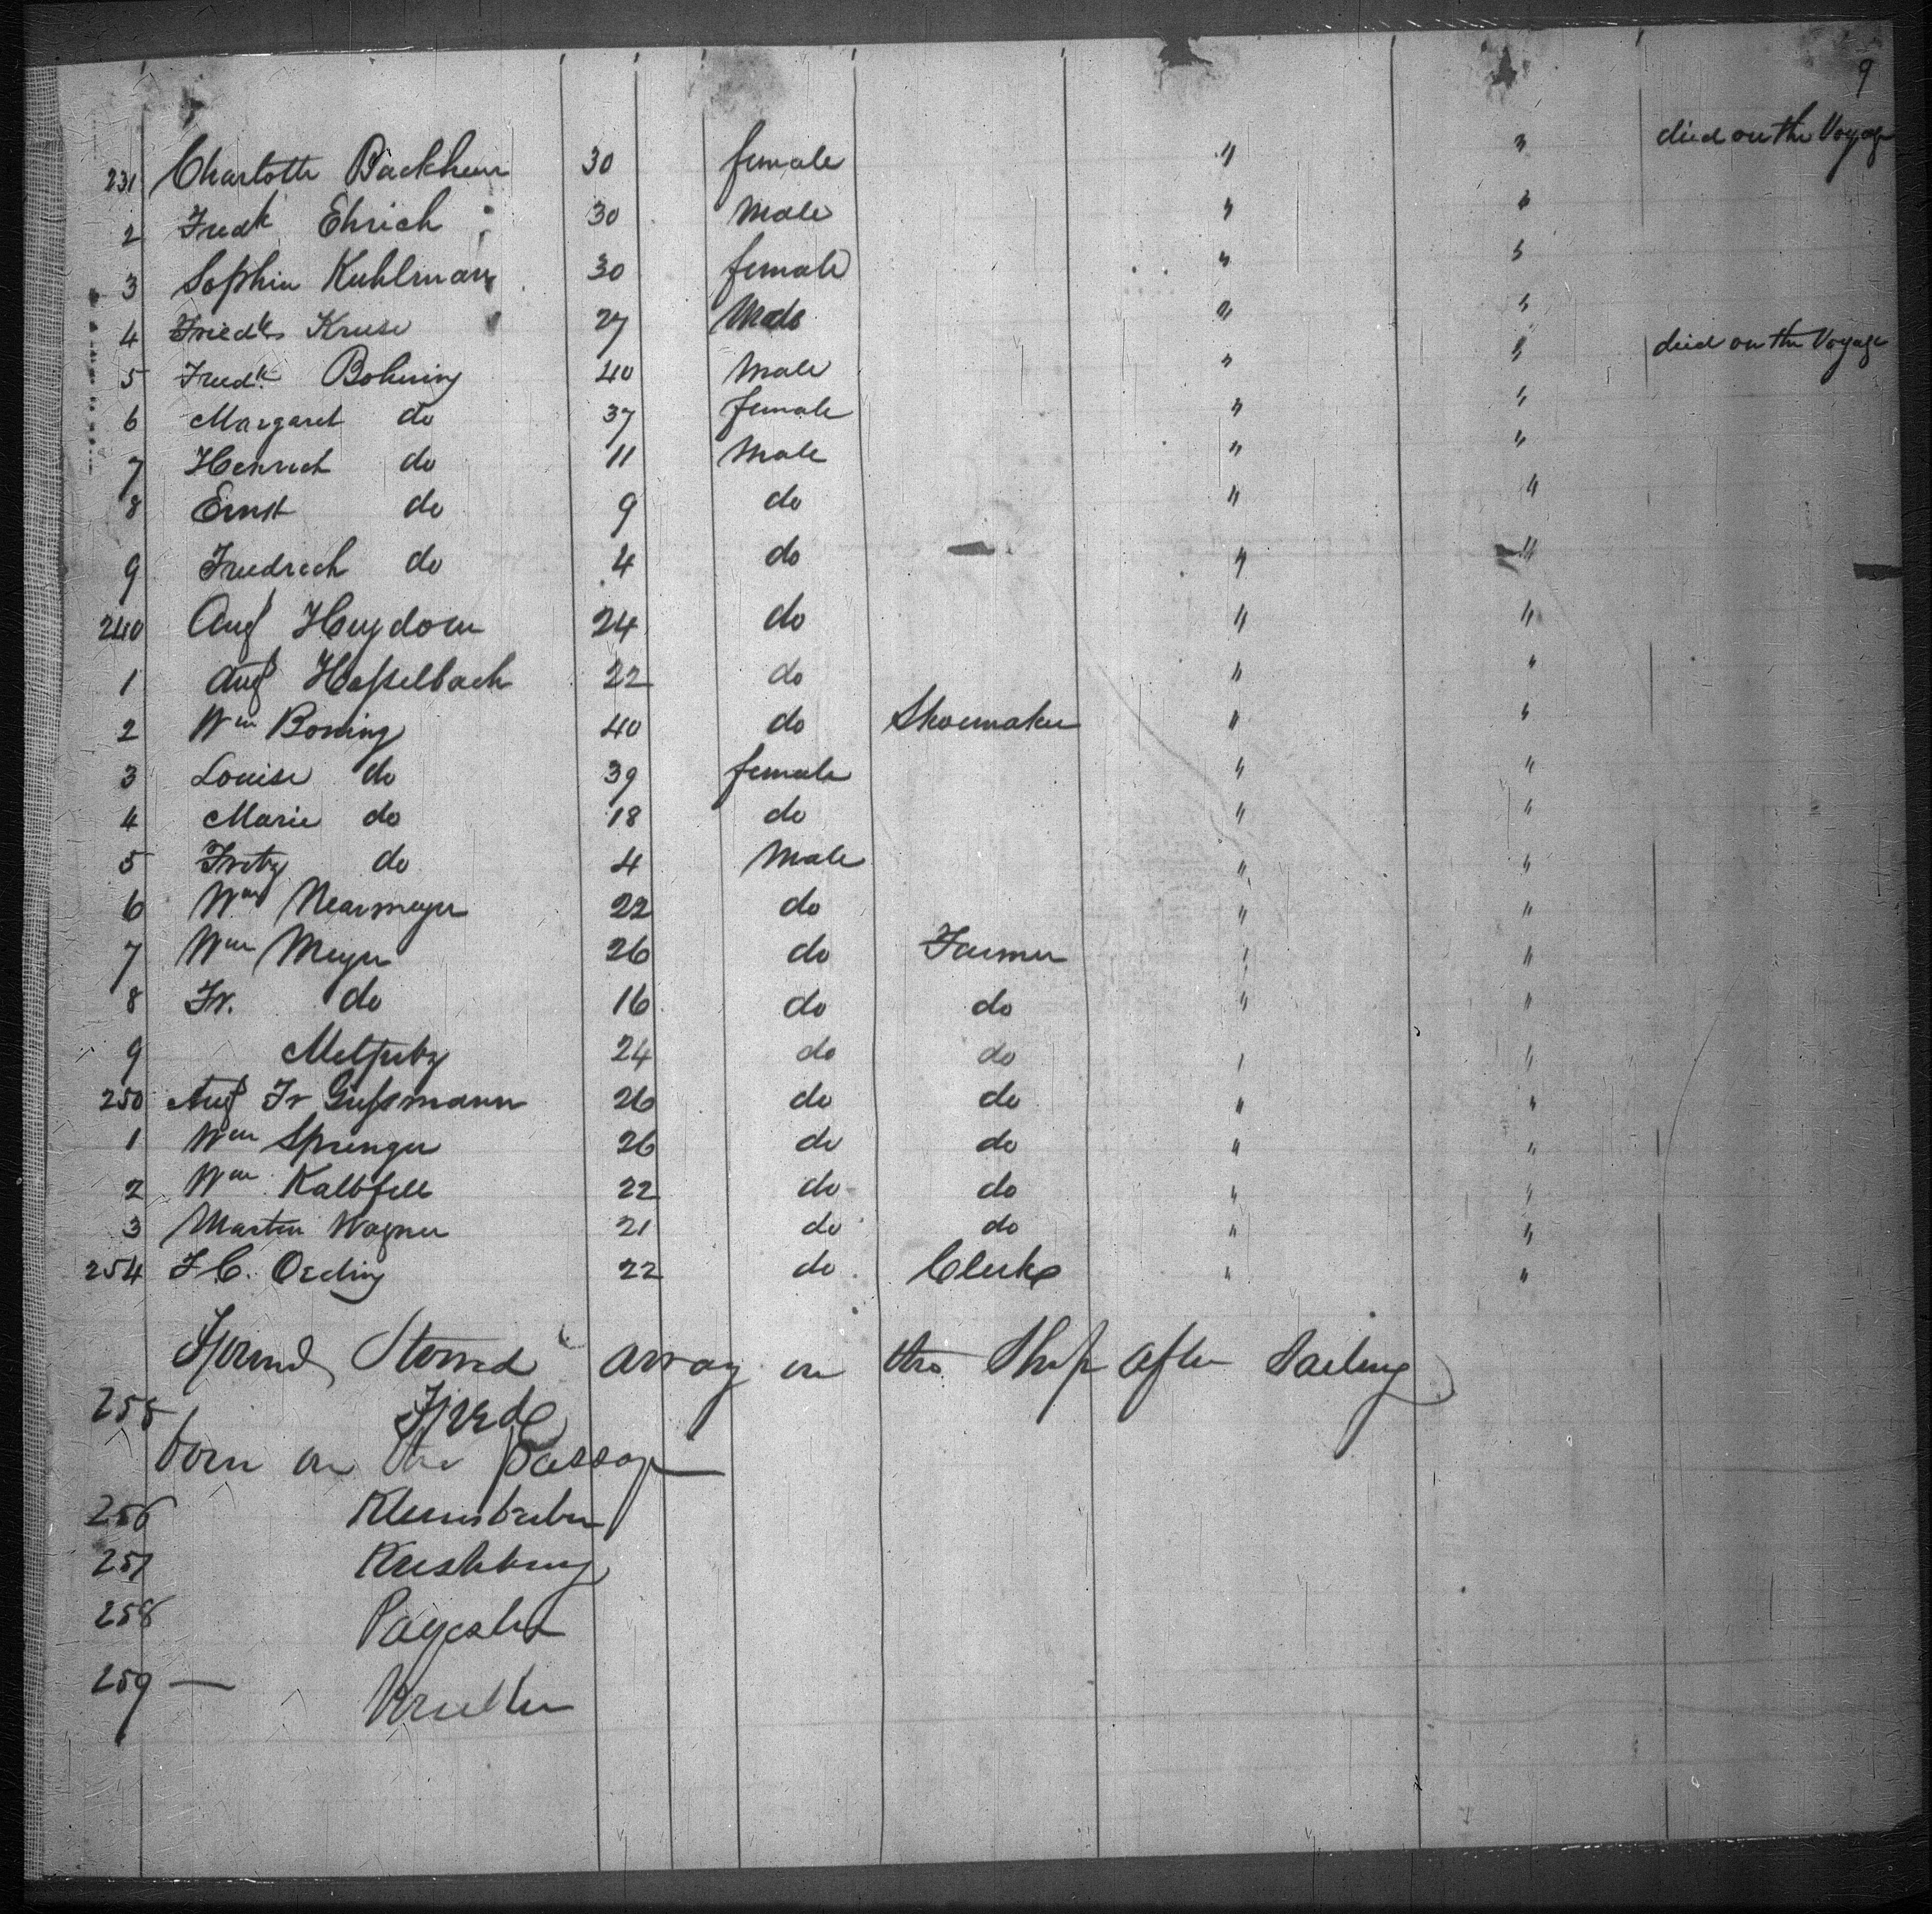 9
231 Charlotte Backhaus 30 female " " died on the Voyage
2 Fredk Ehrich 30 Male " "
3 Sophia Kuhlman 30 female " "
4 Friedk Kruse 27 Male " "
5 Fredk. Bohning 40 Male " " died on the Voyage
6 Margaret do 37 female " "
7 Henrich do 11 Male " "
8 Ernst do 9 do " "
9 Friedrich do 4 do " "
240 Aug Heydorn 24 do " "
1 Aug Hasselbach 22 do " "
2 Wm Boning 40 do Shoemaker " "
3 Louise do 39 female " "
4 Marie do 18 do " "
5 Fritz do 4 Male " "
6 Wm Nearmeyer 22 do " "
7 Wm Meyer 26 do Farmer " "
8 Fr. do 16 do do " "
9 24 do do " "
250 Aug Fr Gussmann 26 do do " "
1 Wm Sprenger 26 do do " "
2 Wm Kalbfell 22 do do " "
3 Martin Wagner 21 do do " "
254 F C. Oeding 22 do Clerk " "
Found Stowed away on the Ship after Sailing
255
born on the Passage
256
257
258
259 —